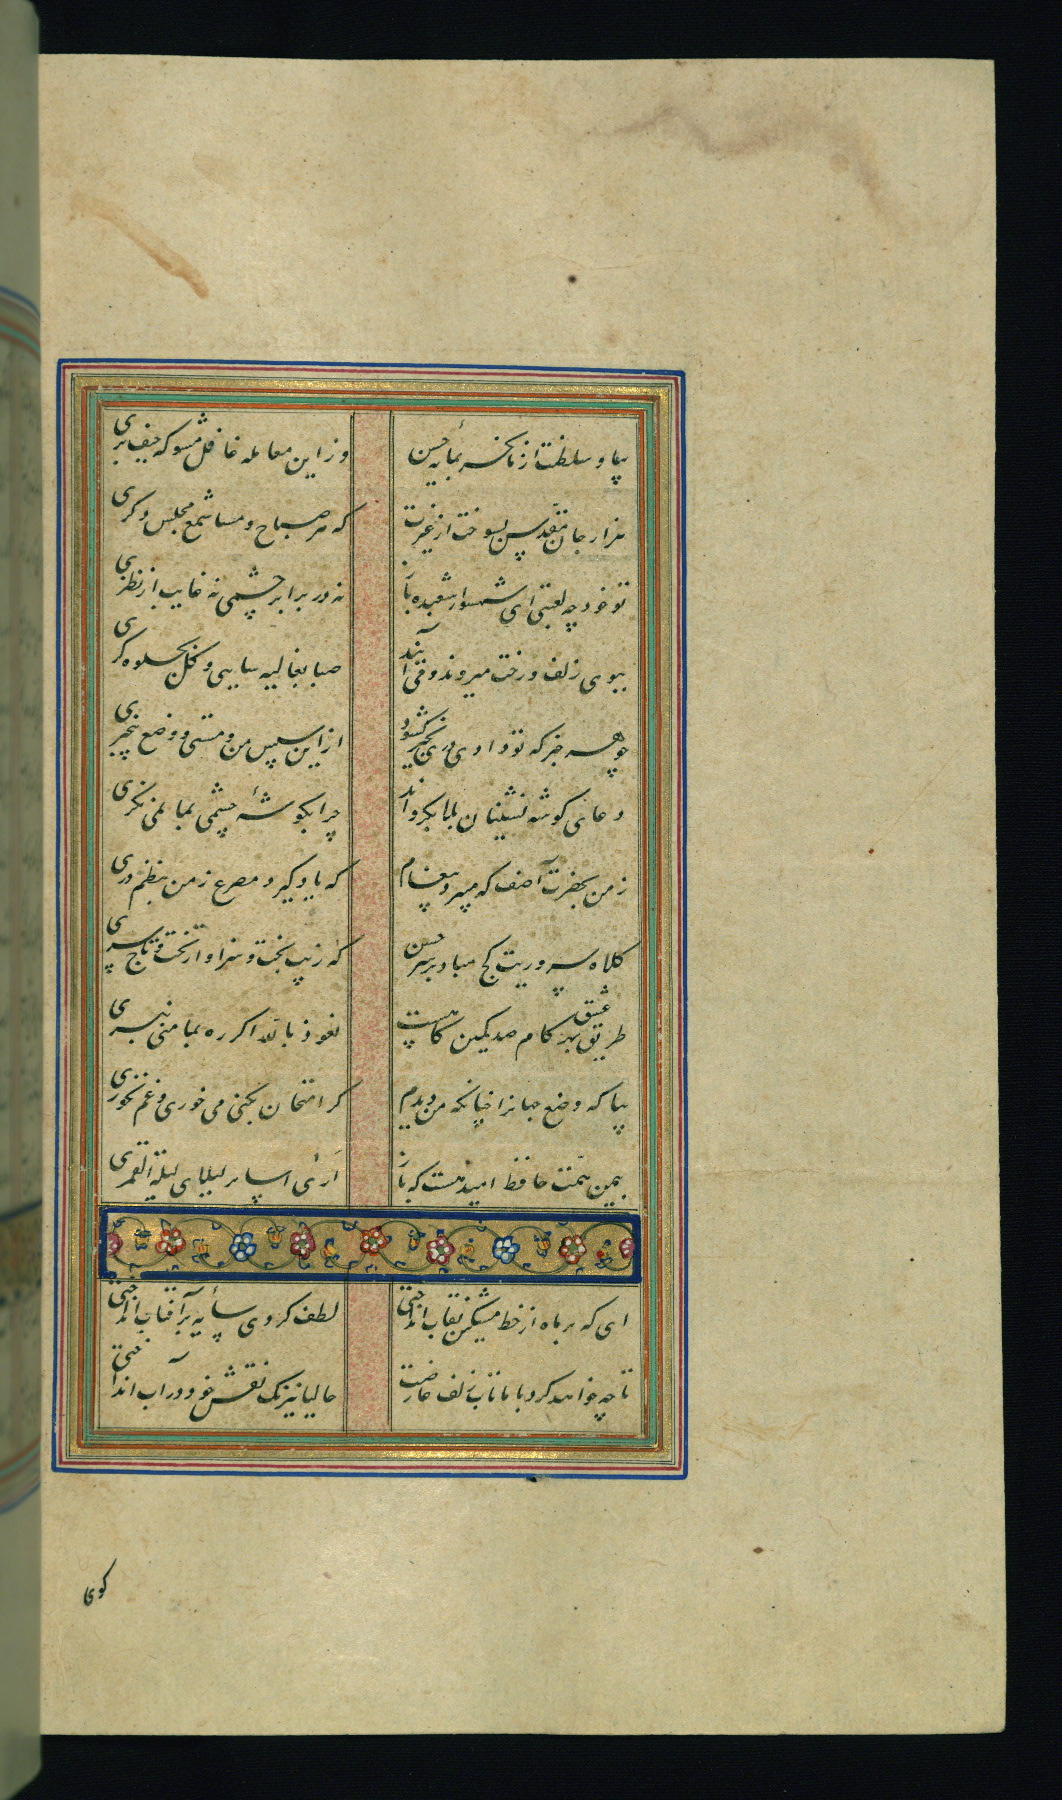 بیا و سلطنت از ما بخر بمایهٔ حسن
وزاین معامله غافل مشو که حیف بری
هزار جان مقدس بسوخت از غیرت
که هر صباح و مسا شمع مجلس دگری
تو خود چه لعبتی ای شهسوار شعبده باز
نه در برابر چشمی نه غایب از نظری
ببوی زلف و رخت میروند و می آیند
صبا بغالیه سایی و گل بجلوه گری
چو هر خبر که تو دادی در تحیر بکشود
ازاین سپس من و مستی و وضع بیخبری
دعای گوشه نشینان بلا بگرداند
چرا بگوشهٔ چشمی بما نمی نگری
ز من بحضرت آصف که میبرد پیغام
که یاد گیر دو مصرع ز من بنظم دری
کلاه سروریت کج مباد بر سر حسن
که زیب بخت و سزاوار تخت و تاج سری
طریق عشق بهر کام صد کمین گاهست
نعوذ بالله اگر ره بمامنی نبری
بیا که وضع جهانرا چنانکه من دیدم
گر امتحان بکنی می خوری و غم نخوری
بیمن همت حافظ امید هست که باز
اری اسامر لیلای لیلة القمری
ای که بر ماه از خط مشکین نقاب انداختی
لطف کردی سایهٔ بر آفتاب انداختی
تا چه خواهد کرد با ما تاب زلف عارضت
حالیا نیرنک نقش خود در آب انداختی
کوی